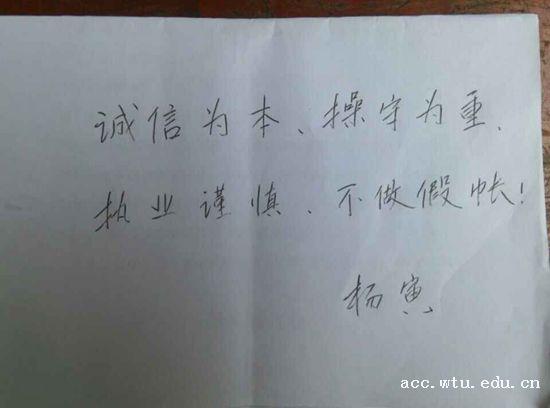 诚信为本、操守为重、
执业谨慎、不做假帐!
杨寅
acc.wtu.edu.cn